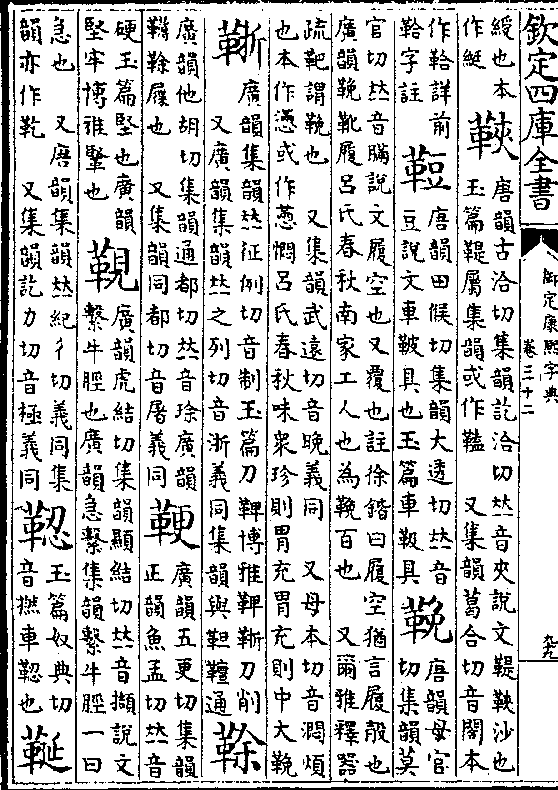 欽定四庫全書
御定康熙字典
卷三十二
綬也本
作綎
䩡
唐韻古洽切集韻訖洽切𠀤音夾說文鞮䩡沙也
玉篇鞮屬集韻或作 又集韻葛合切音閤本
作鞈詳前
鞈字註
唐韻田候切集韻大透切𠀤音
豆說文車鞁具也玉篇車鞁具
鞔
唐韻母官
切集韻莫
官切𠀤音瞞說文履空也又覆也註徐鍇曰履空猶言履殻也
廣韻鞔靴履呂氏春秋南家工人也為鞔百也 又爾雅釋器
疏靶謂鞔也 又集韻武遠切音晚義同 又母本切音懣煩
也本作懣或作懑悶呂氏春秋味衆珍則胃充胃充則中大鞔
䩢
廣韻集韻𠀤征例切音制玉篇刀鞞博雅鞞䩢刀削
又廣韻集韻𠀤之列切音浙義同集韻與靼韇通
䩣
廣韻他胡切集韻通都切𠀤音瑹廣韻
䩣履也 又集韻同都切音屠義同
鞕
廣韻五更切集韻
正韻魚孟切𠀤音
硬玉篇堅也廣韻
堅牢博雅鞕也
䩤
廣韻虎結切集韻顯結切𠀤音擷說文
繫牛脛也廣韻急繫集韻繫牛脛一曰
急也 又唐韻集韻𠀤紀彳切義同集
韻亦作 又集韻訖力切音極義同
玉篇奴典切
音撚車 也